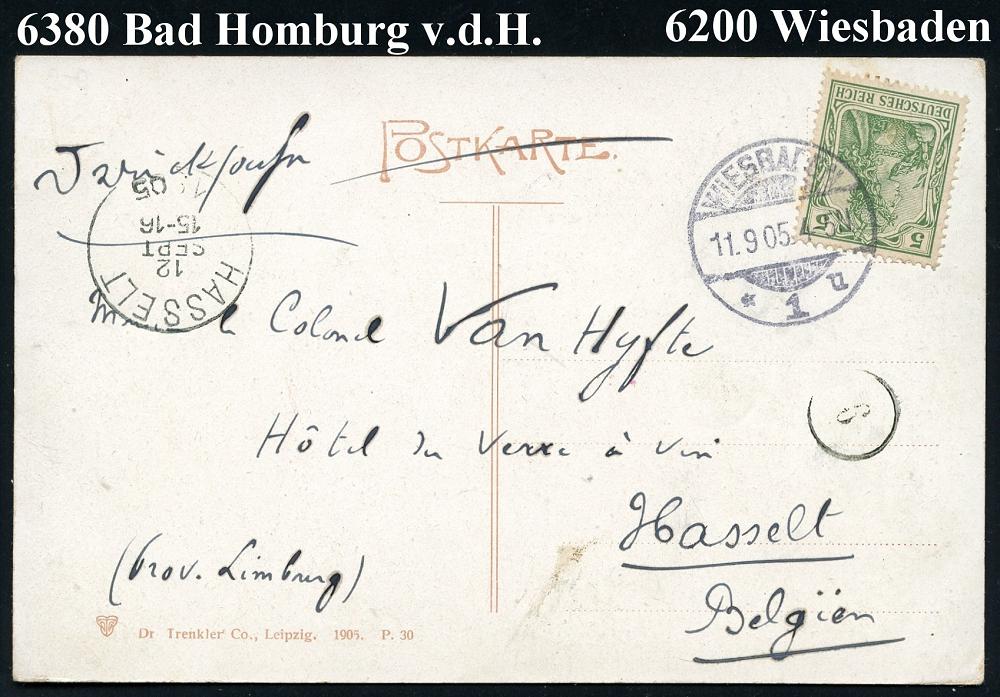 6380 Bad Homburg v.d.H.
6200 Wiesbaden
POSTKARTE.
DEUTSCHES REICH
5 5
WIESBADEN
11.9.05.
* 1 u
HASSELT
12
SEPT
15-16
1905
Drucksache
le Colonel Van Hyfte
Hôtel du Verre à vin
Hasselt
Belgien
(prov. Limburg)
Dr Trenkler Co., Leipzig. 1905. P. 30